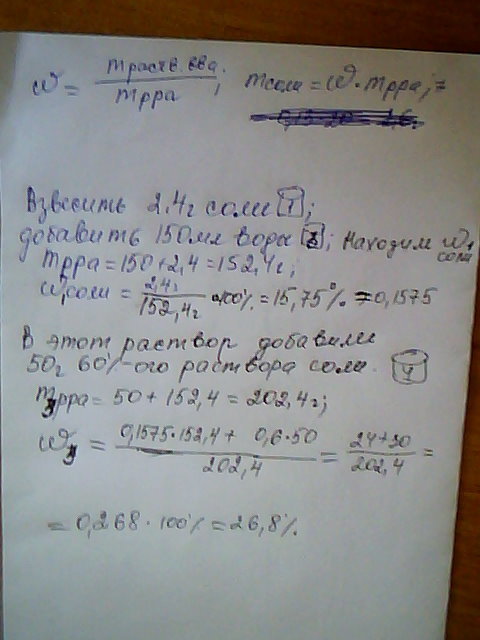 W = m раств. ва / m рра ; m соли = W · m рра ; =
Взвесить 2,4г соли 1 ;
добавить 150мл воды ; Находим W1 соли
m рра = 150 + 2,4 = 152,4г ;
W1 соли = 2,4г / 152,4г · 100% = 15,75% = 0,1575
В этот раствор добавили
50г 60%-ого раствора соли. 4
m3 рра = 50 + 152,4 = 202,4г ;
W3 = 0,1575·152,4 + 0,6·50 / 202,4 = 24+30 / 202,4 =
= 0,268 · 100% = 26,8%.